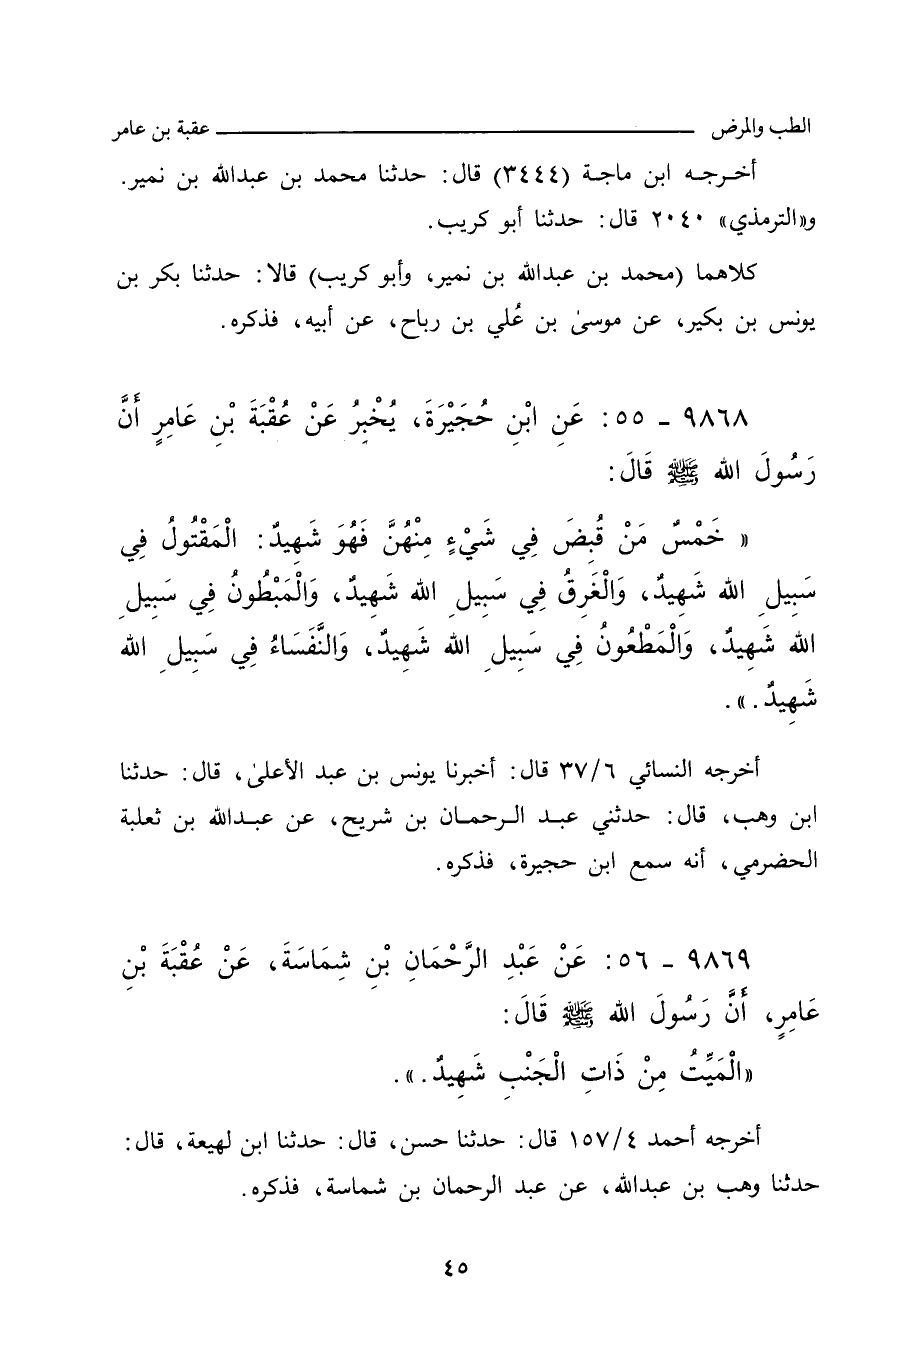 الطب والمرض ــــــــــــــــــــــــــــــــ عقبة بن عامر
أخـرجـه ابن ماجـة (٣٤٤٤) قال: حدثنا محمد بن عبدالله بن نمير.
و«الترمذي» ٢٠٤٠ قال: حدثنا أبو كريب.
كلاهما (محمد بن عبدالله بن نمير، وأبو كريب) قالا: حدثنا بكر بن
يونس بن بكير، عن موسىٰ بن عُلي بن رباح، عن أبيه، فذكره.
٩٨٦٨ - ٥٥: عَنِ ابْنِ حُجَيْرَةَ، يُخْبِرُ عَنْ عُقْبَةَ بْنِ عَامِرٍ أَنَّ
رَسُولَ الله ﷺ قَالَ:
« خَمْسٌ مَنْ قُبِضَ فِي شَيْءٍ مِنْهُنَّ فَهُوَ شَهِيدٌ: الْمَقْتُولُ فِي
سَبِيلِ الله شَهِيدٌ، وَالْغَرِقُ فِي سَبِيلِ الله شَهِيدٌ، وَالْمَبْطُونُ فِي سَبِيلِ
الله شَهِيدٌ، وَالْمَطْعُونُ فِي سَبِيلِ الله شَهِيدٌ، وَالنُّفَسَاءُ فِي سَبِيلِ الله
شَهِيدٌ.».
أخرجه النسائي ٣٧/٦ قال: أخبرنا يونس بن عبد الأعلىٰ، قال: حدثنا
ابن وهب، قال: حدثني عبـد الـرحمـان بن شريح، عن عبـدالله بن ثعلبة
الحضرمي، أنه سمع ابن حجيرة، فذكره.
٩٨٦٩ - ٥٦: عَنْ عَبْدِ الرَّحْمَانِ بْنِ شِمَاسَةَ، عَنْ عُقْبَةَ بْنِ
عَامِرٍ، أَنَّ رَسُولَ الله ﷺ قَالَ:
«الْمَيِّتُ مِنْ ذَاتِ الْجَنْبِ شَهِيدٌ.».
أخرجه أحمد ١٥٧/٤ قال: حدثنا حسن، قال: حدثنا ابن لهيعة، قال:
حدثنا وهب بن عبدالله، عن عبد الرحمان بن شماسة، فذكره.
٤٥